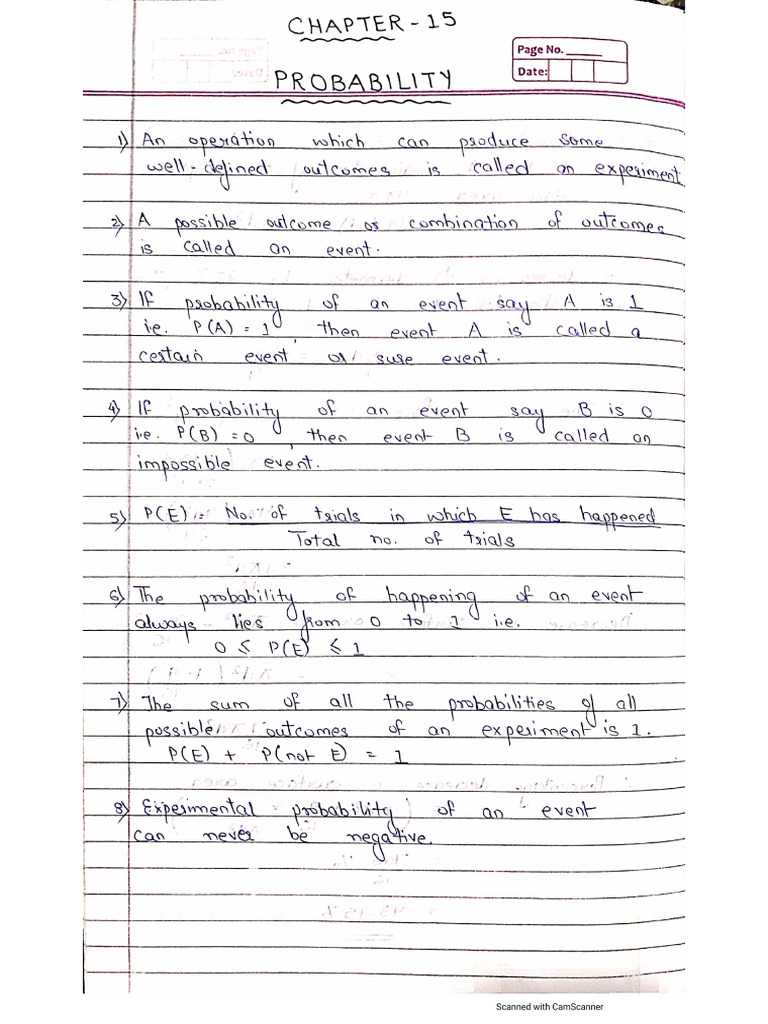 CHAPTER - 15
Page No. ______
Date:
PROBABILITY
1) An operation which can produce some
well-defined outcomes is called an experiment
2) A possible outcome or combination of outcomes
is called an event.
3) If probability of an event say A is 1
i.e. P(A) = 1, then event A is called a
certain event or sure event.
4) If probability of an event say B is 0
i.e. P(B) = 0, then event B is called an
impossible event.
5) P(E) = No. of trials in which E has happened
Total no. of trials
6) The probability of happening of an event
always lies from 0 to 1 i.e.
0 ≤ P(E) ≤ 1
7) The sum of all the probabilities of all
possible outcomes of an experiment is 1.
P(E) + P(not E) = 1
8) Experimental probability of an event
can never be negative.
Scanned with CamScanner